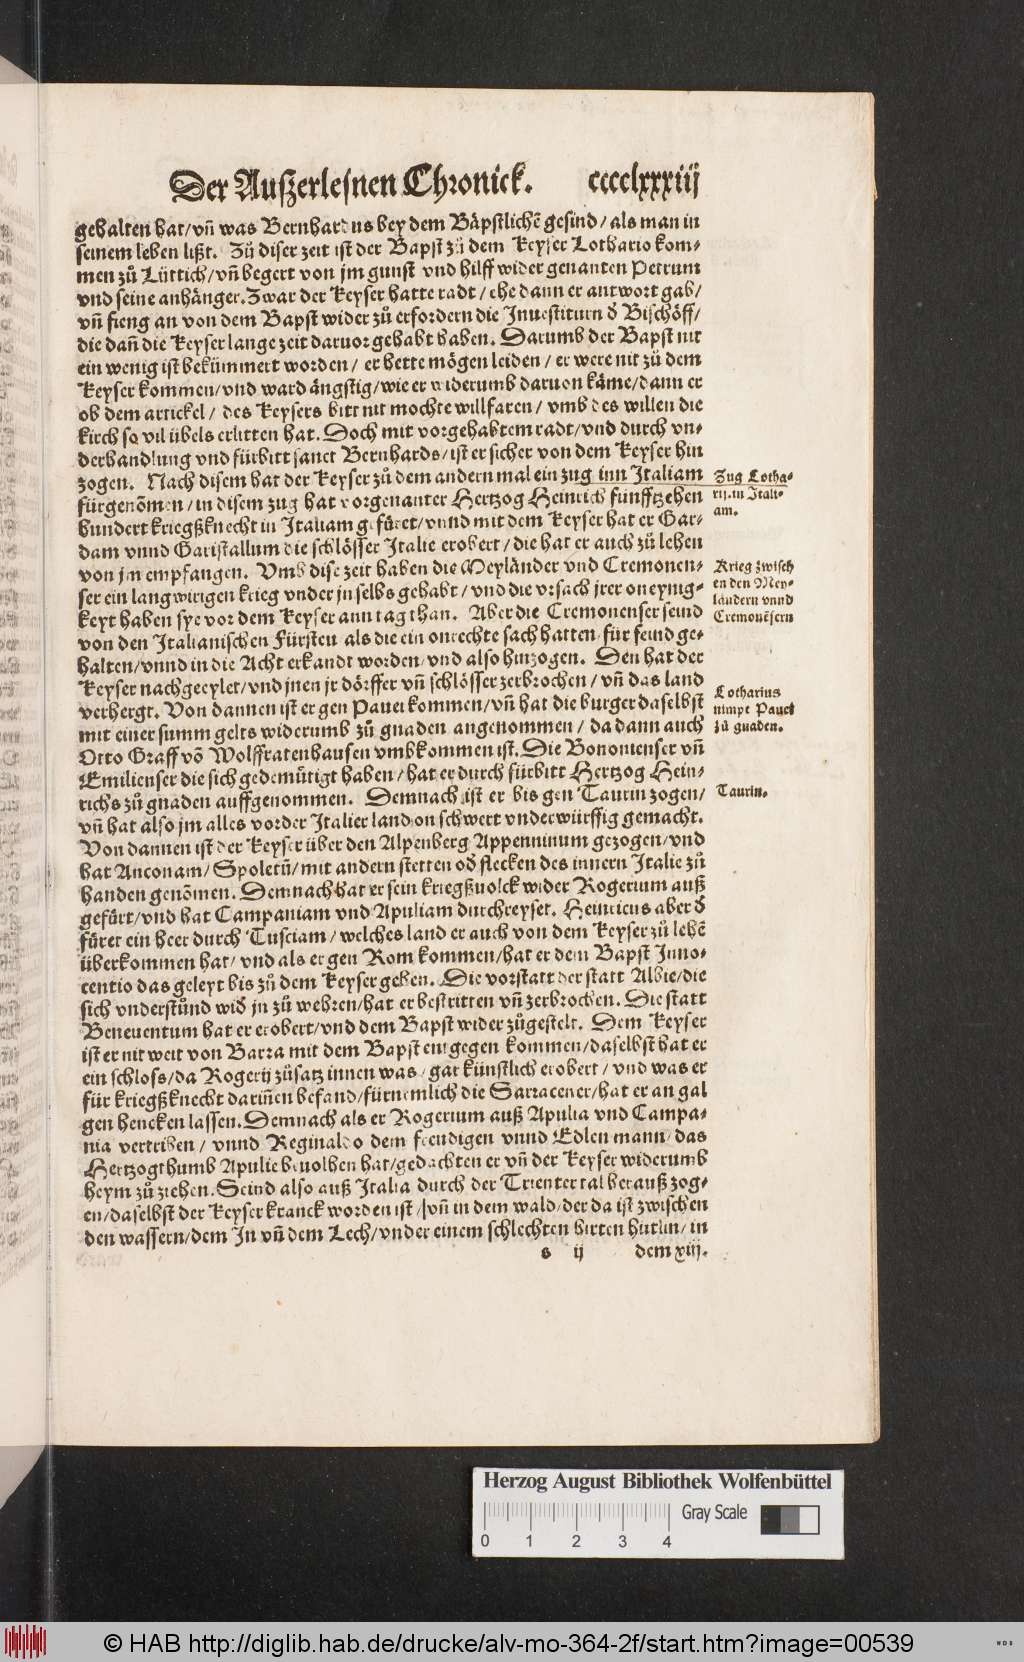 Der Außerlesnen Chronick. cccclxxxiij
gehalten hat/ vñ was Bernhardus bey dem Bäpstlichẽ gesind/ als man in
seinem leben lißt. Zů diser zeit ist der Bapst zů dem Keyser Lothario kom-
men zů Lüttich/ vñ begert von jm gunst vnd hilff wider genanten Petrum
vnd seine anhänger. Zwar der Keyser hatte radt/ ehe dann er antwort gab/
vñ fieng an von dem Bapst wider zů erfordern die Inuestiturn ð Bischöff/
die dañ die Keyser lange zeit daruor gehabt haben. Darumb der Bapst nit
ein wenig ist bekümmert worden/ er hette mögen leiden/ er were nit zů dem
Keyser kommen/ vnd ward ängstig/ wie er widerumb daruon käme/ dann er
ob dem artickel/ des Keysers bitt nit mochte willfaren/ vmb des willen die
kirch so vil übels erlitten hat. Doch mit vorgehabtem radt/ vnd durch vn-
derhandlung vnd fürbitt sanct Bernhards/ ist er sicher von dem Keyser hin
zogen. Nach disem hat der Keyser zů dem andern mal ein zug inn Italiam
fürgenõmen/ in disem zug hat vorgenanter Hertzog Heinrich fünfftzehen
hundert kriegßknecht in Italiam gefüret/ vnnd mit dem Keyser hat er Gar-
dam vnnd Garistallum die schlösser Italie erobert/ die hat er auch zů lehen
von jm empfangen. Vmb dise zeit haben die Meyländer vnd Cremonen-
ser ein langwirigen krieg vnder jn selbs gehabt/ vnd die vrsach jrer oneynig-
keyt haben sye vor dem Keyser ann tag than. Aber die Cremonenser seind
von den Italianischen Fürsten als die ein onrechte sach hatten/ für feind ge-
halten/ vnnd in die Acht erkandt worden/ vnd also hinzogen. Den hat der
Keyser nachgeeylet/ vnd jnen jr dörffer vñ schlösser zerbrochen/ vñ das land
verhergt. Von dannen ist er gen Pauei kommen/ vñ hat die burger daselbst
mit einer summ gelts widerumb zů gnaden angenommen/ da dann auch
Otto Graff võ Wolffratenhausen vmbkommen ist. Die Bononienser vñ
Emilienser die sich gedemütigt haben/ hat er durch fürbitt Hertzog Hein-
richs zů gnaden auffgenommen. Demnach ist er bis gen Taurin zogen/
vñ hat also jm alles vorder Italier land on schwert vnderwürffig gemacht.
Von dannen ist der Keyser über den Alpenberg Appenninum gezogen/ vnd
hat Anconam/ Spoletũ/ mit andern stetten oð flecken des innern Italie zů
handen genõmen. Demnach hat er sein kriegßuolck wider Rogerium auß
gefürt/ vnd hat Campaniam vnd Apuliam durchreyset. Heinricus aber ð
füret ein heer durch Tusciam/ welches land er auch von dem Keyser zů lehẽ
überkommen hat/ vnd als er gen Rom kommen/ hat er dem Bapst Inno-
centio das geleyt bis zů dem Keyser geben. Die vorstatt der statt Albie/ die
sich vnderstůnd wið jn zů wehren/ hat er bestritten vñ zerbrochen. Die statt
Beneuentum hat er erobert/ vnd dem Bapst wider zůgestelt. Dem Keyser
ist er nit weit von Barra mit dem Bapst entgegen kommen/ daselbst hat er
ein schloss/ da Rogerij zůsatz innen was/ gar künstlich erobert/ vnd was er
für kriegßknecht dariñen befand/ fürnemlich die Sarracener/ hat er an gal
gen hencken lassen. Demnach als er Rogerium auß Apulia vnd Campa-
nia vertriben/ vnnd Reginaldo dem freudigen vnnd Edlen mann/ das
Hertzogthumb Apulie beuolhen hat/ gedachten er vñ der Keyser widerumb
heym zů ziehen. Seind also auß Italia durch der Trienter tal herauß zog-
en/ daselbst der Keyser kranck worden ist/ vñ in dem wald/ der da ist zwischen
den wassern/ dem In vñ dem Lech/ vnder einem schlechten hirten hütlin/ in
s ij dem xiij.
Zug Lotha-
rij in Itali-
am.
Krieg zwisch
en den Mey-
ländern vnnd
Cremonẽsern
Lotharius
nimpt Pauei
zů gnaden.
Taurin.
Herzog August Bibliothek Wolfenbüttel
Gray Scale
0 1 2 3 4
© HAB http://diglib.hab.de/drucke/alv-mo-364-2f/start.htm?image=00539